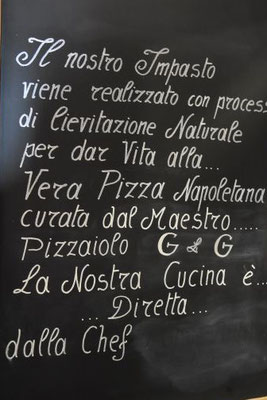 Il nostro Impasto
viene realizzato con process
di lievitazione Naturale
per dar Vita alla...
Vera Pizza Napoletana
curata dal Maestro.....
Pizzaiolo G & G
La Nostra Cucina è...
... Diretta...
dalla Chef